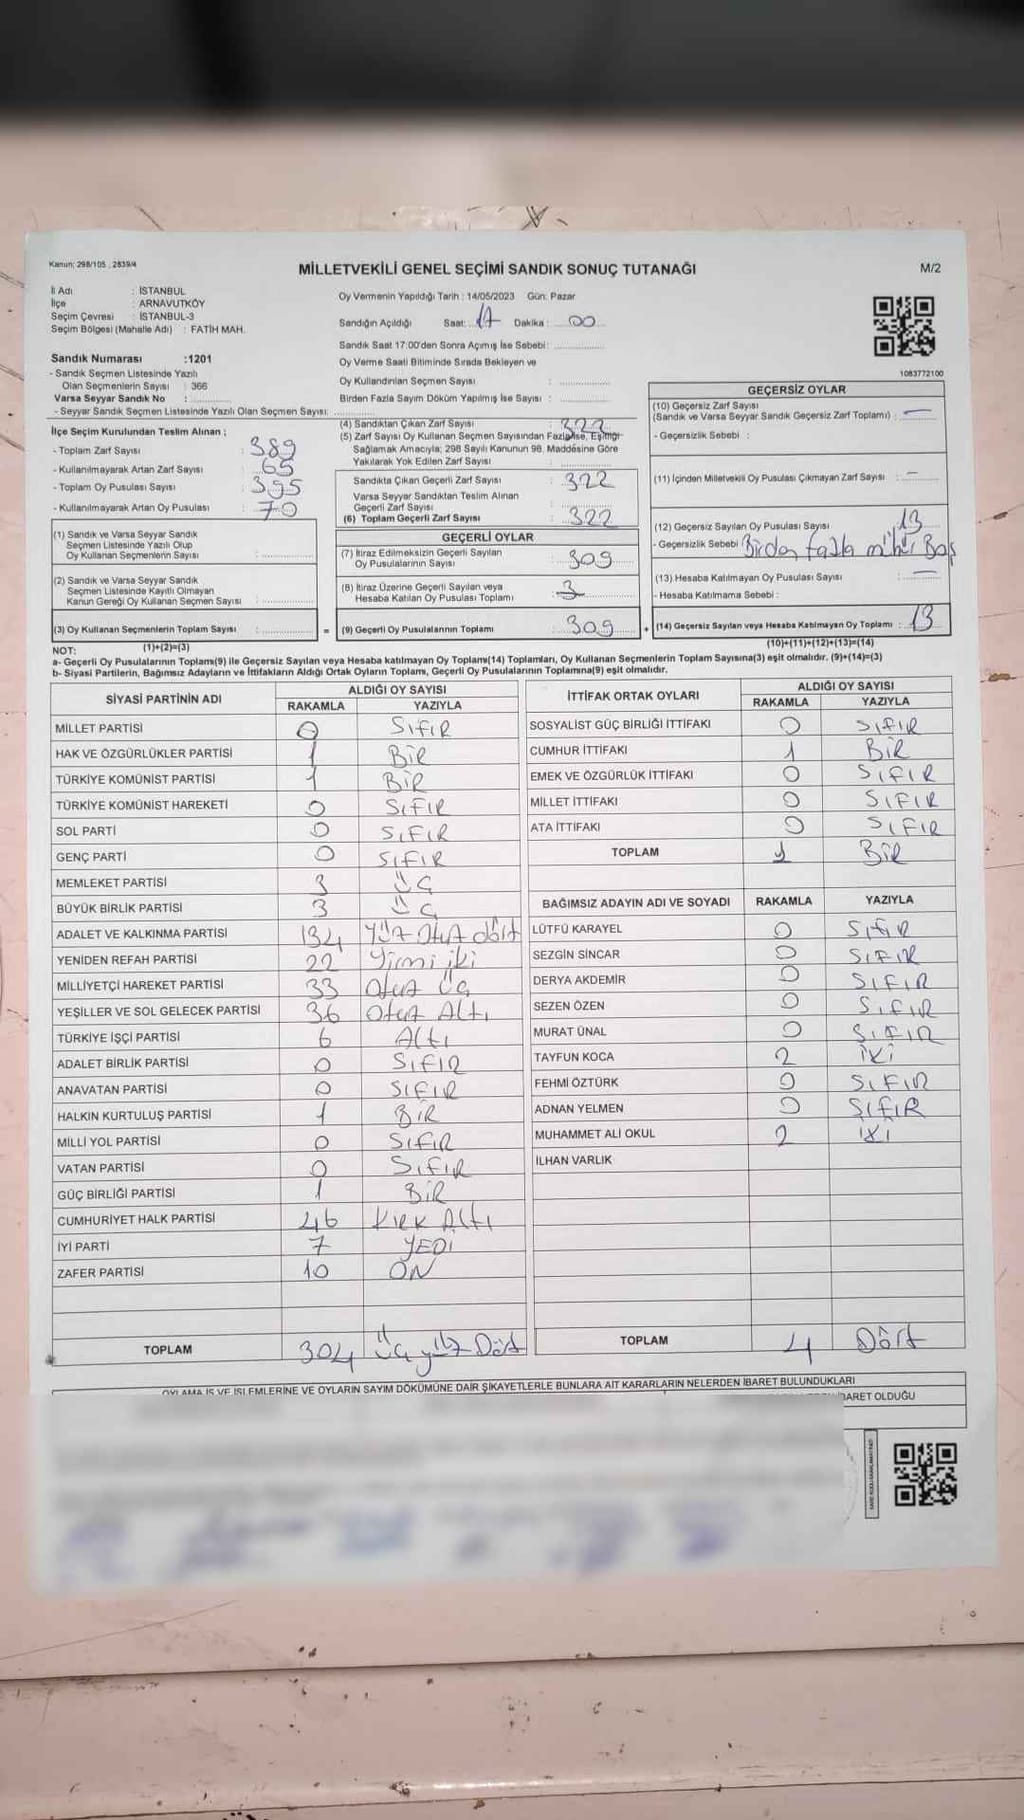 Kanun: 298/105 , 2839/4
MİLLETVEKİLİ GENEL SEÇİMİ SANDIK SONUÇ TUTANAĞI
M/2
İl Adı : İSTANBUL
İlçe : ARNAVUTKÖY
Seçim Çevresi : İSTANBUL-3
Seçim Bölgesi (Mahalle Adı) : FATİH MAH.
Sandık Numarası :1201
- Sandık Seçmen Listesinde Yazılı
Olan Seçmenlerin Sayısı : 366
Varsa Seyyar Sandık No :
- Seyyar Sandık Seçmen Listesinde Yazılı Olan Seçmen Sayısı:
Oy Vermenin Yapıldığı Tarih : 14/05/2023 Gün: Pazar
Sandığın Açıldığı Saat: 17 Dakika : 00
Sandık Saat 17:00'den Sonra Açımış İse Sebebi :
Oy Verme Saati Bitiminde Sırada Bekleyen ve
Oy Kullandırılan Seçmen Sayısı :
Birden Fazla Sayım Döküm Yapılmış İse Sayısı :
1083772100
İlçe Seçim Kurulundan Teslim Alınan ;
- Toplam Zarf Sayısı : 389
- Kullanılmayarak Artan Zarf Sayısı : 65
- Toplam Oy Pusulası Sayısı : 395
- Kullanılmayarak Artan Oy Pusulası : 70
(1) Sandık ve Varsa Seyyar Sandık
Seçmen Listesinde Yazılı Olup
Oy Kullanan Seçmenlerin Sayısı :
(2) Sandık ve Varsa Seyyar Sandık
Seçmen Listesinde Kayıtlı Olmayan
Kanun Gereği Oy Kullanan Seçmen Sayısı :
(3) Oy Kullanan Seçmenlerin Toplam Sayısı : =
(1)+(2)=(3)
(4) Sandıktan Çıkan Zarf Sayısı : 322
(5) Zarf Sayısı Oy Kullanan Seçmen Sayısından Fazla İse, Eşitliği
Sağlamak Amacıyla; 298 Sayılı Kanunun 98. Maddesine Göre
Yakılarak Yok Edilen Zarf Sayısı :
Sandıkta Çıkan Geçerli Zarf Sayısı : 322
Varsa Seyyar Sandıktan Teslim Alınan
Geçerli Zarf Sayısı :
(6) Toplam Geçerli Zarf Sayısı : 322
GEÇERLİ OYLAR
(7) İtiraz Edilmeksizin Geçerli Sayılan
Oy Pusulalarının Sayısı : 309
(8) İtiraz Üzerine Geçerli Sayılan veya
Hesaba Katılan Oy Pusulası Toplamı :
(9) Geçerli Oy Pusulalarının Toplamı : 309 +
GEÇERSİZ OYLAR
(10) Geçersiz Zarf Sayısı
(Sandık ve Varsa Seyyar Sandık Geçersiz Zarf Toplamı) : —
- Geçersizlik Sebebi :
(11) İçinden Milletvekili Oy Pusulası Çıkmayan Zarf Sayısı : —
(12) Geçersiz Sayılan Oy Pusulası Sayısı : 13
- Geçersizlik Sebebi : Birden fazla mühür Bas
(13) Hesaba Katılmayan Oy Pusulası Sayısı : —
- Hesaba Katılmama Sebebi :
(14) Geçersiz Sayılan veya Hesaba Katılmayan Oy Toplamı : 13
(10)+(11)+(12)+(13)=(14)
NOT:
a- Geçerli Oy Pusulalarının Toplamı(9) ile Geçersiz Sayılan veya Hesaba katılmayan Oy Toplamı(14) Toplamları, Oy Kullanan Seçmenlerin Toplam Sayısına(3) eşit olmalıdır. (9)+(14)=(3)
b- Siyasi Partilerin, Bağımsız Adayların ve İttifakların Aldığı Ortak Oyların Toplamı, Geçerli Oy Pusulalarının Toplamına(9) eşit olmalıdır.
SİYASİ PARTİNİN ADI ALDIĞI OY SAYISI
RAKAMLA YAZIYLA
MİLLET PARTİSİ 0 SIFIR
HAK VE ÖZGÜRLÜKLER PARTİSİ 1 BİR
TÜRKİYE KOMÜNİST PARTİSİ 1 BİR
TÜRKİYE KOMÜNİST HAREKETİ 0 SIFIR
SOL PARTİ 0 SIFIR
GENÇ PARTİ 0 SIFIR
MEMLEKET PARTİSİ 3 ÜÇ
BÜYÜK BİRLİK PARTİSİ 3 ÜÇ
ADALET VE KALKINMA PARTİSİ 134 Yüz Otuz dört
YENİDEN REFAH PARTİSİ 22 Yirmi iki
MİLLİYETÇİ HAREKET PARTİSİ 33 Otuz Üç
YEŞİLLER VE SOL GELECEK PARTİSİ 36 Otuz Altı
TÜRKİYE İŞÇİ PARTİSİ 6 Altı
ADALET BİRLİK PARTİSİ 0 SIFIR
ANAVATAN PARTİSİ 0 SIFIR
HALKIN KURTULUŞ PARTİSİ 1 BİR
MİLLİ YOL PARTİSİ 0 SIFIR
VATAN PARTİSİ 0 SIFIR
GÜÇ BİRLİĞİ PARTİSİ 1 BİR
CUMHURİYET HALK PARTİSİ 46 Kırk Altı
İYİ PARTİ 7 YEDİ
ZAFER PARTİSİ 10 ON
TOPLAM 304 Üç yüz Dört
İTTİFAK ORTAK OYLARI ALDIĞI OY SAYISI
RAKAMLA YAZIYLA
SOSYALİST GÜÇ BİRLİĞİ İTTİFAKI 0 SIFIR
CUMHUR İTTİFAKI 1 BİR
EMEK VE ÖZGÜRLÜK İTTİFAKI 0 SIFIR
MİLLET İTTİFAKI 0 SIFIR
ATA İTTİFAKI 0 SIFIR
TOPLAM 1 BİR
BAĞIMSIZ ADAYIN ADI VE SOYADI RAKAMLA YAZIYLA
LÜTFÜ KARAYEL 0 SIFIR
SEZGİN SİNCAR 0 SIFIR
DERYA AKDEMİR 0 SIFIR
SEZEN ÖZEN 0 SIFIR
MURAT ÜNAL 0 SIFIR
TAYFUN KOCA 2 İKİ
FEHMİ ÖZTÜRK 0 SIFIR
ADNAN YELMEN 0 SIFIR
MUHAMMET ALİ OKUL 2 İKİ
İLHAN VARLIK
TOPLAM 4 Dört
OYLAMA İŞ VE İŞLEMLERİNE VE OYLARIN SAYIM DÖKÜMÜNE DAİR ŞİKAYETLERLE BUNLARA AİT KARARLARIN NELERDEN İBARET BULUNDUKLARI
İBARET OLDUĞU